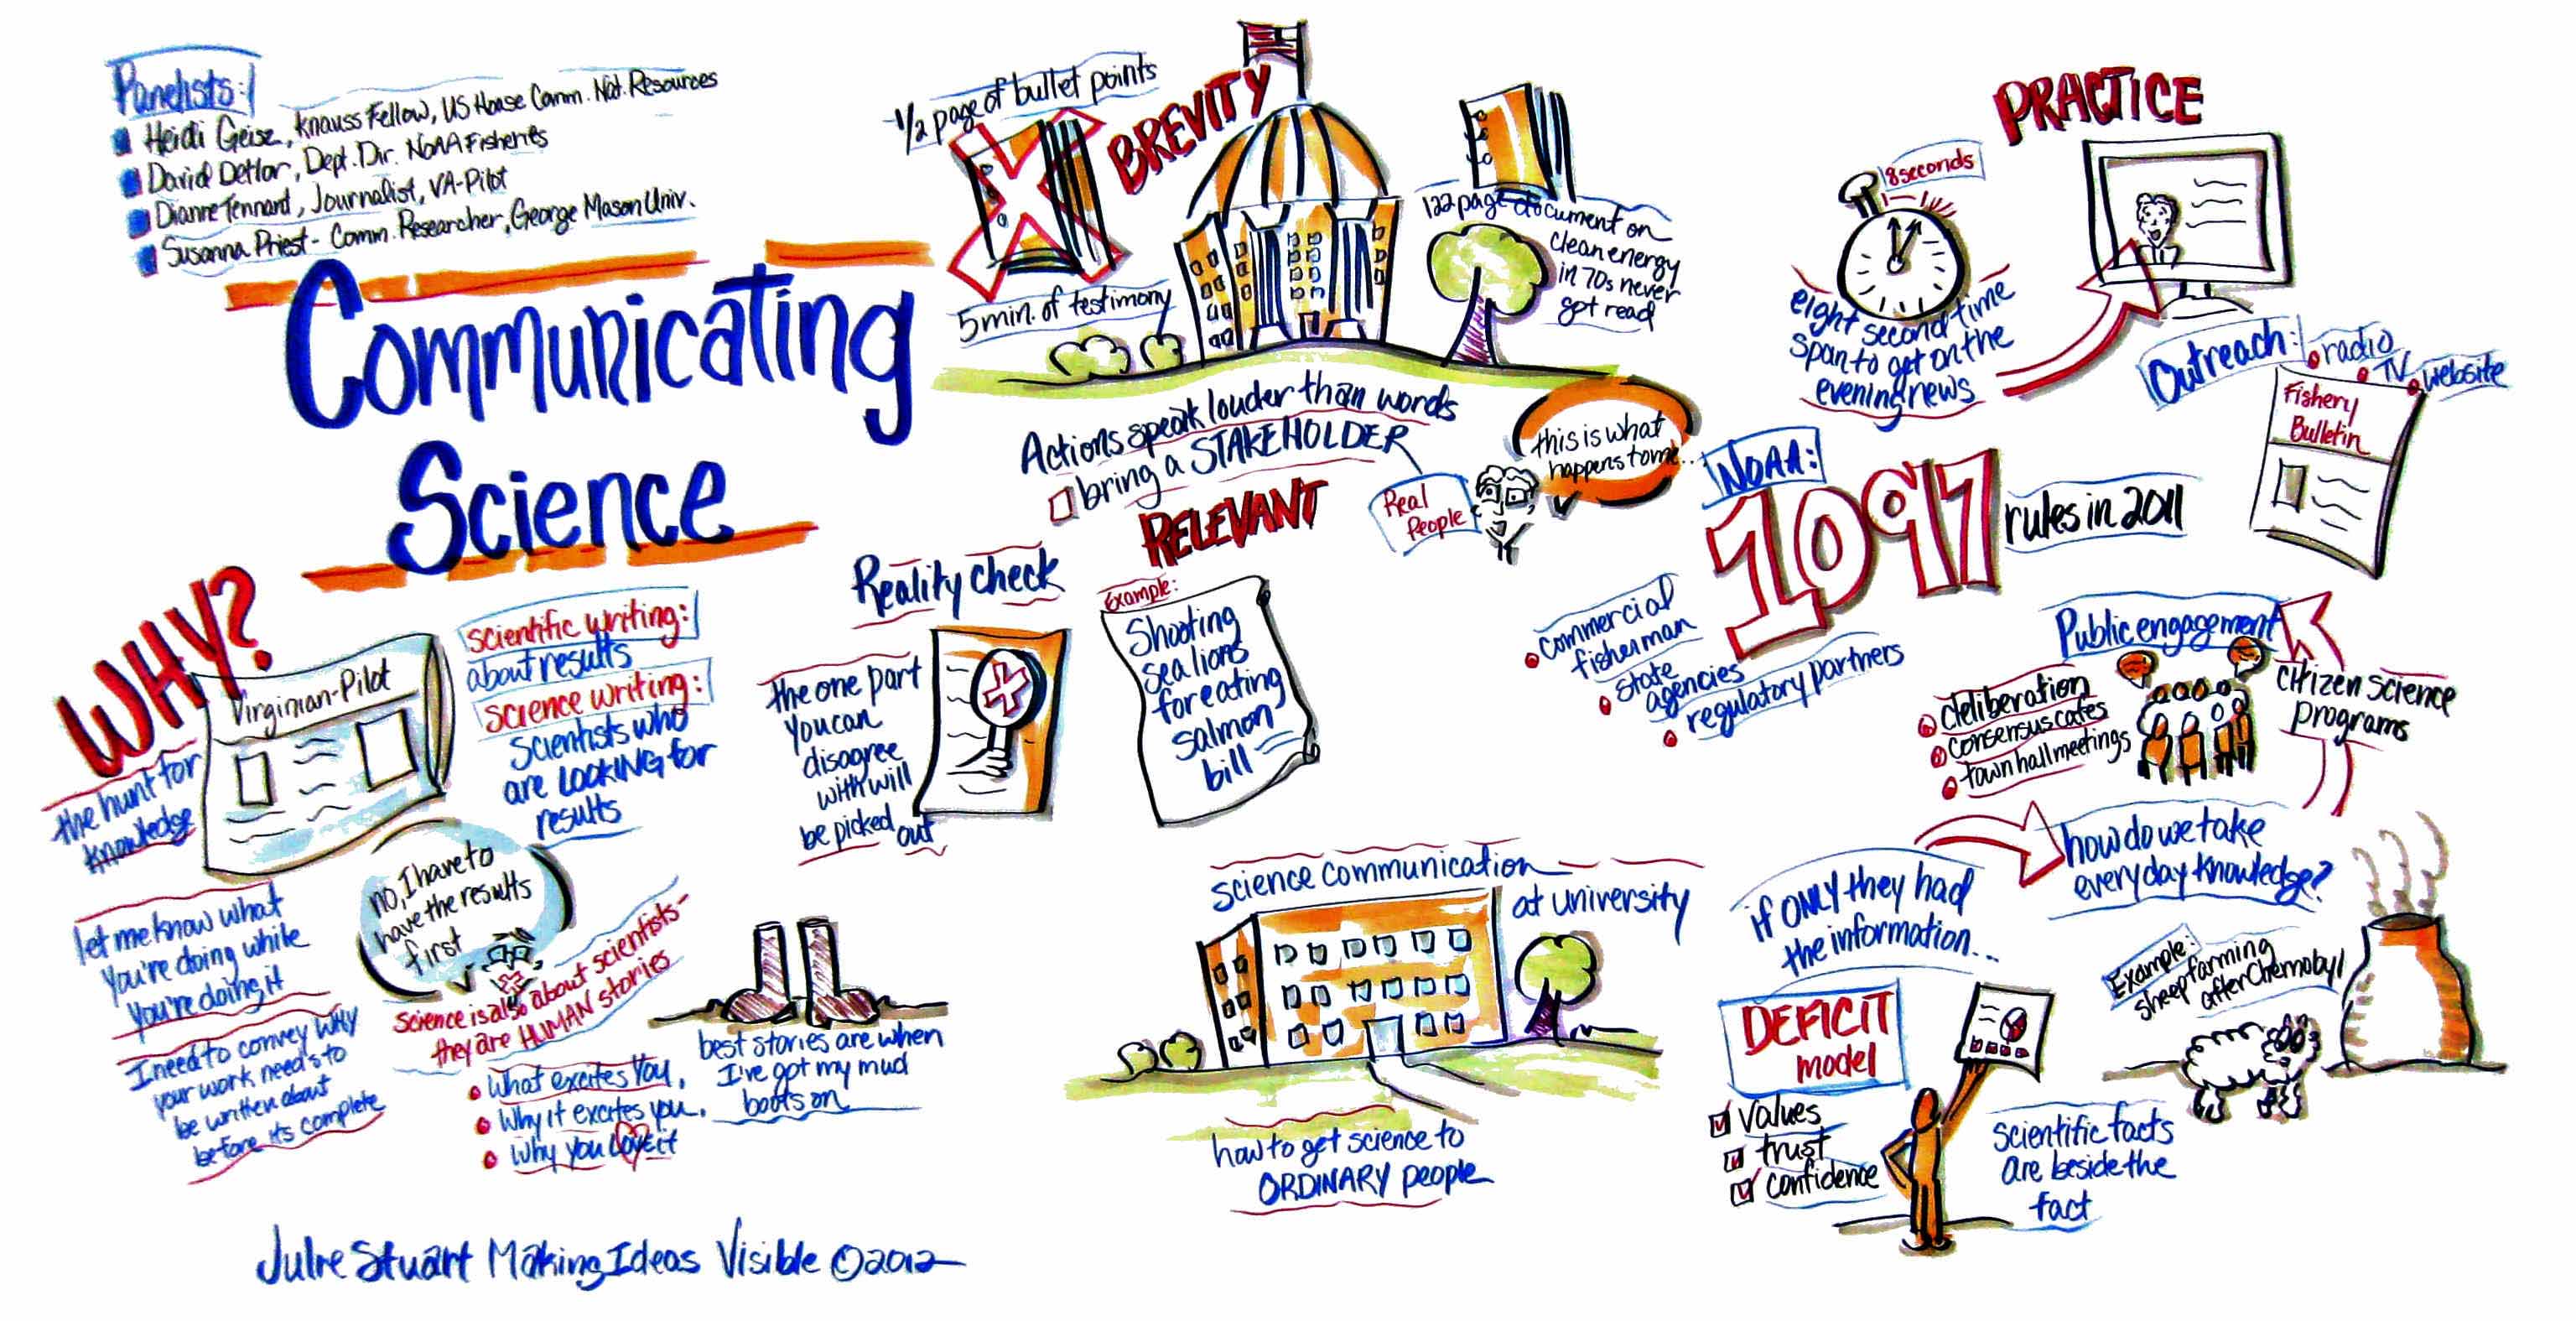 Panelists:
Heidi Geisz, Knauss Fellow, US House Comm. Nat. Resources
David Detlor, Dept. Dir. NOAA Fisheries
Dianne Tennard, Journalist, VA-Pilot
Susanna Priest - Comm. Researcher, George Mason Univ.
Communicating
Science
WHY?
the hunt for
knowledge
Virginian-Pilot
scientific writing:
about results
science writing:
scientists who
are LOOKING for
results
let me know what
you're doing while
you're doing it
no, I have to
have the results
first
I need to convey WHY
your work needs to
be written about
before its complete
science is also about scientists-
they are HUMAN stories
What excites you,
Why it excites you,
Why you love it
best stories are when
I've got my mud
boots on
Julie Stuart Making Ideas Visible ©2012
1/2 page of bullet points
BREVITY
5 min. of testimony
122 page document on
clean energy
in 70s never
got read
Actions speak louder than words
bring a STAKEHOLDER
Real
People
this is what
happens to me...
RELEVANT
Reality check
the one part
you can
disagree
with will
be picked out
Example:
Shooting
sea lions
for eating
salmon
bill
science communication
at university
how to get science to
ORDINARY people
PRACTICE
8 seconds
eight second time
span to get on the
evening news
Outreach:
radio
TV
website
Fishery
Bulletin
NOAA:
1097
rules in 2011
commercial
fisherman
state
agencies
regulatory partners
Public engagement
deliberation
consensus cafes
town hall meetings
Citizen science
programs
how do we take
everyday knowledge?
if ONLY they had
the information...
DEFICIT
model
values
trust
confidence
Scientific facts
are beside the
fact
Example:
sheep farming
after Chernobyl